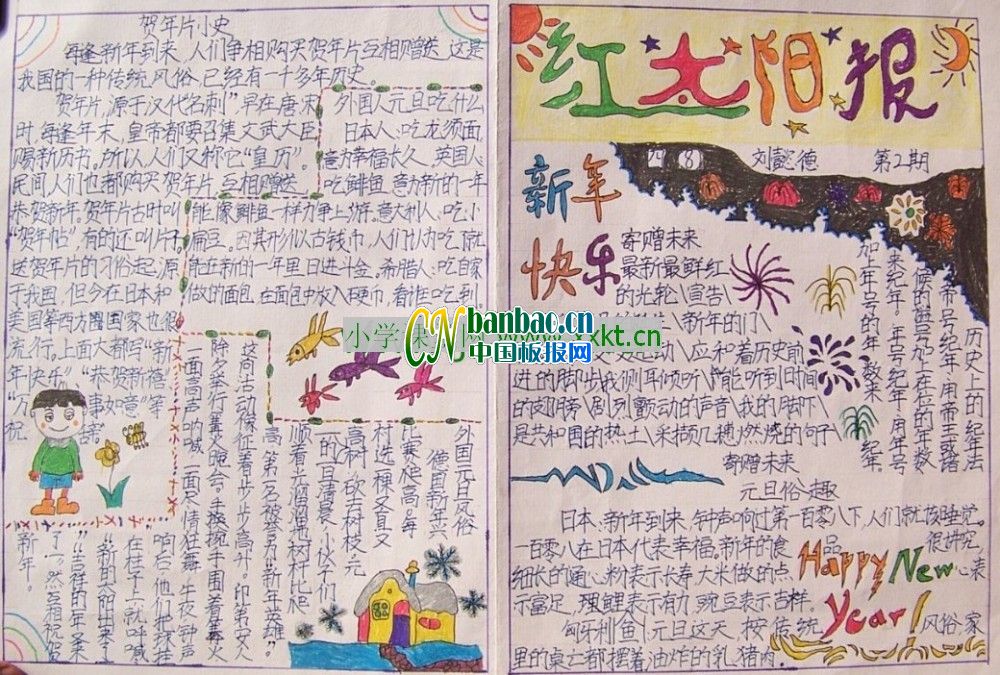 贺年片小史
每逢新年到来,人们争相购买贺年片互相赠送,这是
我国的一种传统风俗,已经有一千多年历史。
贺年片,源于汉代名刺"早在唐宋
时,每逢年末,皇帝都要召集文武大臣
赐新历书。所以人们又称它"皇历"。
民间人们也都购买贺年片,互相赠送
恭贺新年。贺年片古时叫
"贺年帖",有的还叫片子
送贺年片的习俗起源
于我国,但今在日本和
美国等西方国家也很
流行。上面大都写"新
年快乐""恭贺新禧"
事如意"等
祝
外国人元旦吃什么
日本人:吃龙须面
意为幸福长久,英国人:
吃鲜鱼,意为新的一年
能像鲜鱼一样力争上游。意大利人:吃小
扁豆。因其形似古钱币,人们认为吃
能在新的一年里日进斗金。希腊人:吃自家
做的面包,在面包中放入硬币,看谁吃到。
外国元旦风俗
德国新年举
比赛爬高。每
村选一棵又直又
高树,砍去树枝,元
旦清晨,小伙子们
顺着光溜溜树杆比爬
高,第一名被誉为"新年英雄"
尚活动象征着步步高升。印第安人
要举行篝火晚会。手挽手围着篝火
一面高声呐喊,一面尽情狂舞,午夜钟声
响后,他们把球挂
在柱子上就呼喊
"新的太阳出来
了"。然后互相祝贺
新年。
红太阳报
刘懿德 第2期
新年
快乐
寄赠未来
最新最鲜红
的光轮\宣告\
\新年的门\
动\应和着历史前
进的脚步我侧耳倾听\
剧烈颤动的声音\我的脚下\
是共和国的热土\采撷几穗燃烧的句子\
寄赠未来
历史上的纪年法
帝号纪年:用帝王或诸
候的谥号加上在位的年数
来纪年。年号纪年:用年号
加上年号的年数来纪年
元旦俗趣
日本:新年到来,钟声响过第一百零八下,人们就该睡觉。
一百零八在日本代表幸福。新年的食品 很讲究
细长的通心粉表示长寿,大米做的点心表
示富足,鲤鱼表示有力,豌豆表示吉祥。
匈牙利
元旦这天,按传统风俗,家
里的桌上都摆着油炸的乳猪肉。
Happy New
Year!
小学课
xxkt.cn
CN banbao.cn
中国板报网